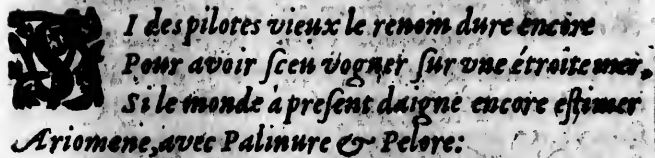 SI des pilotes vieux le renom dure encore
Pour avoir ſceu vogner ſur vne étroite mer,
Si le monde à preſent daigne encore eſtimer
Ariomene, avec Palinure & Pelore: